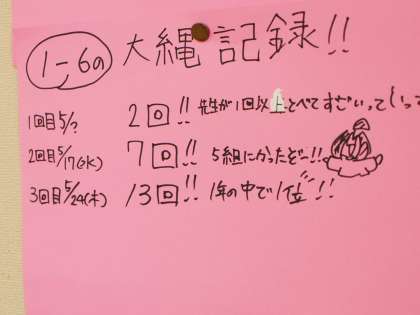 1-6の 大縄記録!!
1回目 5/? 2回!! 先生が1回以上とべてすごいって
2回目 5/17(水) 7回!! 5組にかったどー!!
3回目 5/24(木) 13回!! 1年の中で1位!!